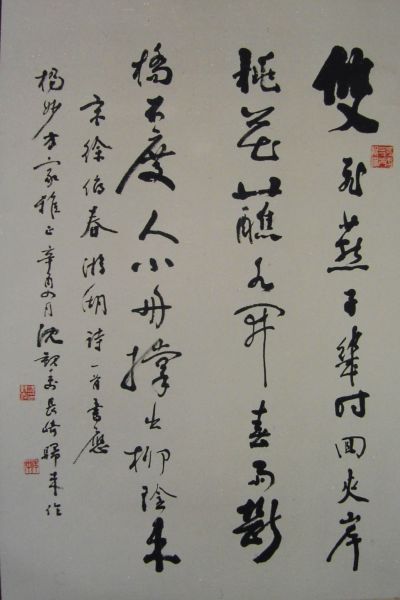 雙飛燕子幾時回夾岸
桃花蘸水開春雨斷
橋不度人小舟撐出柳陰來
宋徐俯春游湖詩一首書應
楊妙方家雅正辛酉四月沈觀壽長崎歸來作